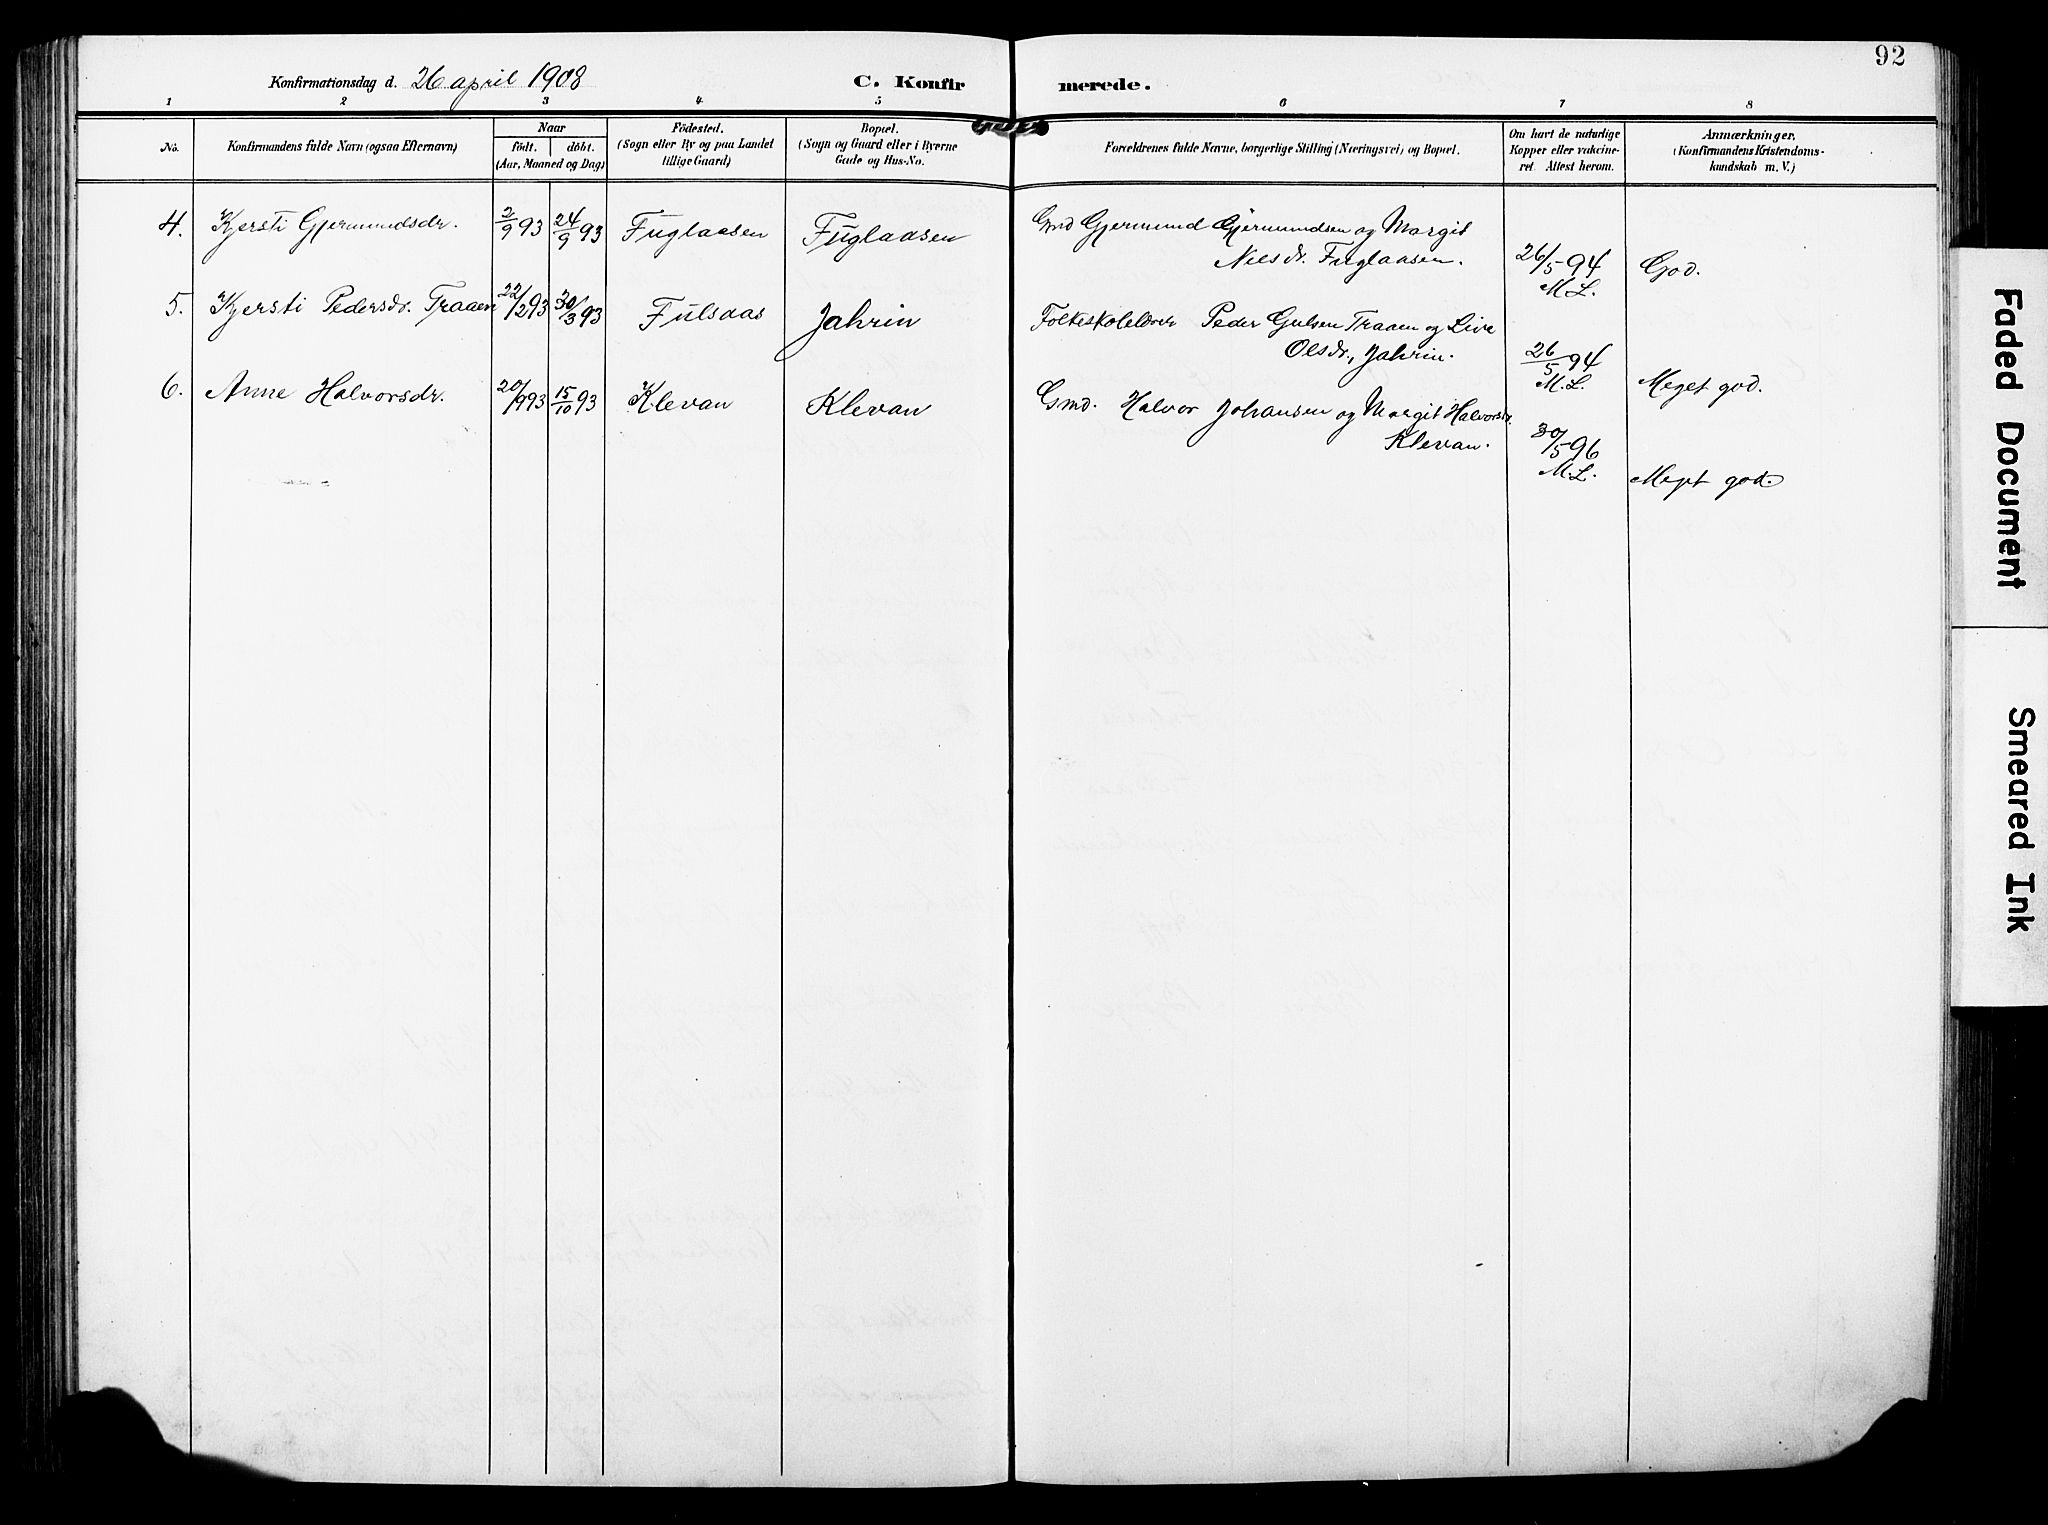 92
Konfirmationsdag d. 26 april 1908 C. Konfirmerede.
1 2 3 4 5 6 7 8
No. Konfirmandens fulde Navn (ogsaa Efternavn)
Naar
født. døbt.
(Aar, Maaned og Dag)
Födested.
(Sogn eller By og paa Landet
tillige Gaard)
Bopæl.
(Sogn og Gaard eller i Byerne
Gade og Hus-No.
Forældrenes fulde Navne, borgerlige Stilling (Næringsvei) og Bopæl.
Om havt de naturlige
Kopper eller vakcine-
ret. Attest herom.
Anmærkninger.
(Konfirmandens Kristendoms-
kundskab m. V.)
4. Kjersti Gjermundsdr. 2/9 93 24/9 93 Fuglaasen Fuglaasen Gmd Gjermund Gjermundsen og Margit
Nielsdr. Fuglaasen. 26/5-94
M.L. God.
5. Kjersti Pedersdr. Traaen 22/2 93 30/3 93 Fulsaas Jahrin Folkeskolelærer Peder Gulsen Traaen og Live
Olsdr., Jahrin. 26/5 94
M.L. Meget god.
6. Anne Halvorsdr. 20/9 93 15/10 93 Klevan Klevan Gmd. Halvor Johansen og Margit Halvorsdr.
Klevan. 30/5-96
M.L. Meget god.
Faded Document
Smeared Ink